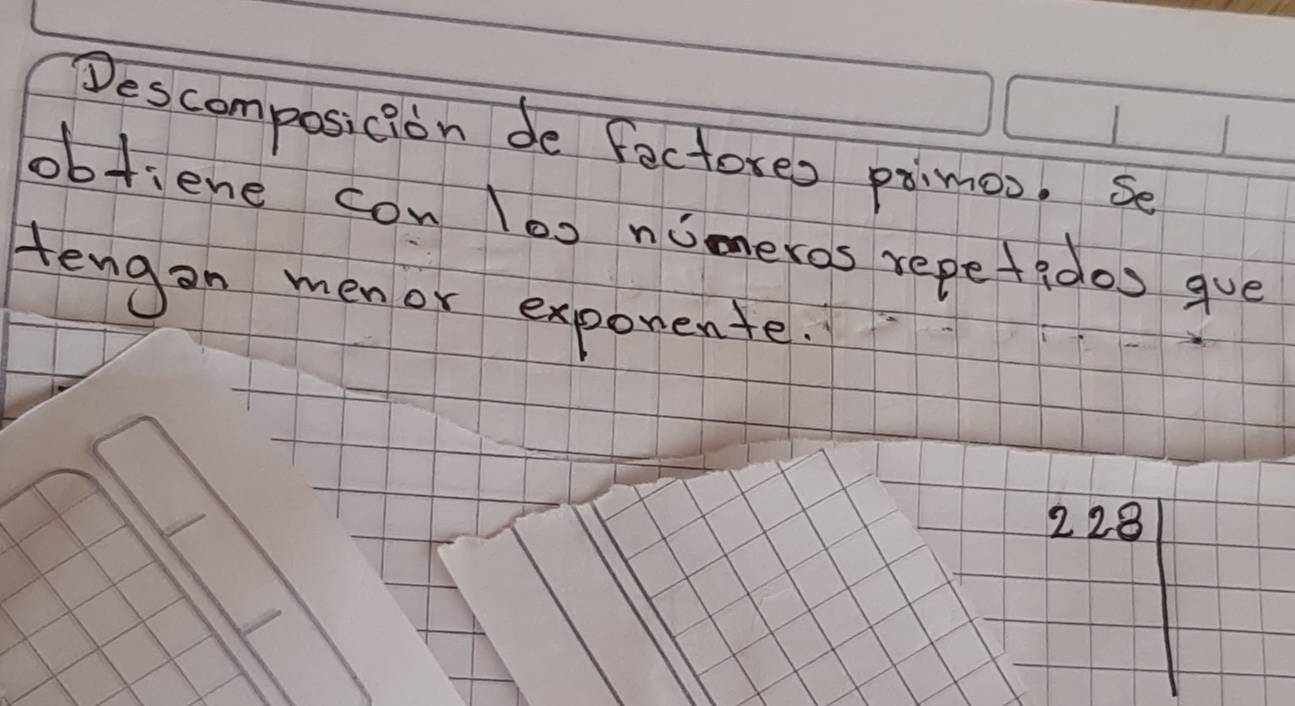 Descomposición de factores primos. Se
obtiene con los números repetidos que
tengan menor exponente.
228